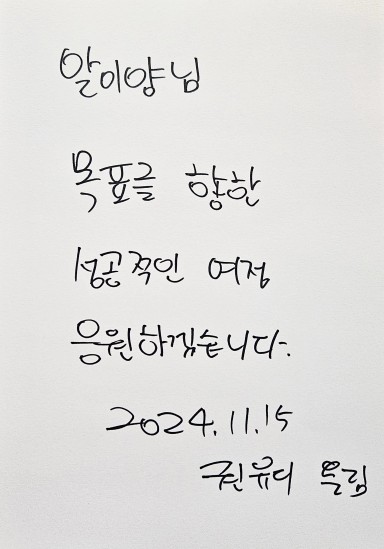 알이얍님
목표를 향한
성공적인 여정
응원하겠습니다.
2024.11.15
권유디 드림